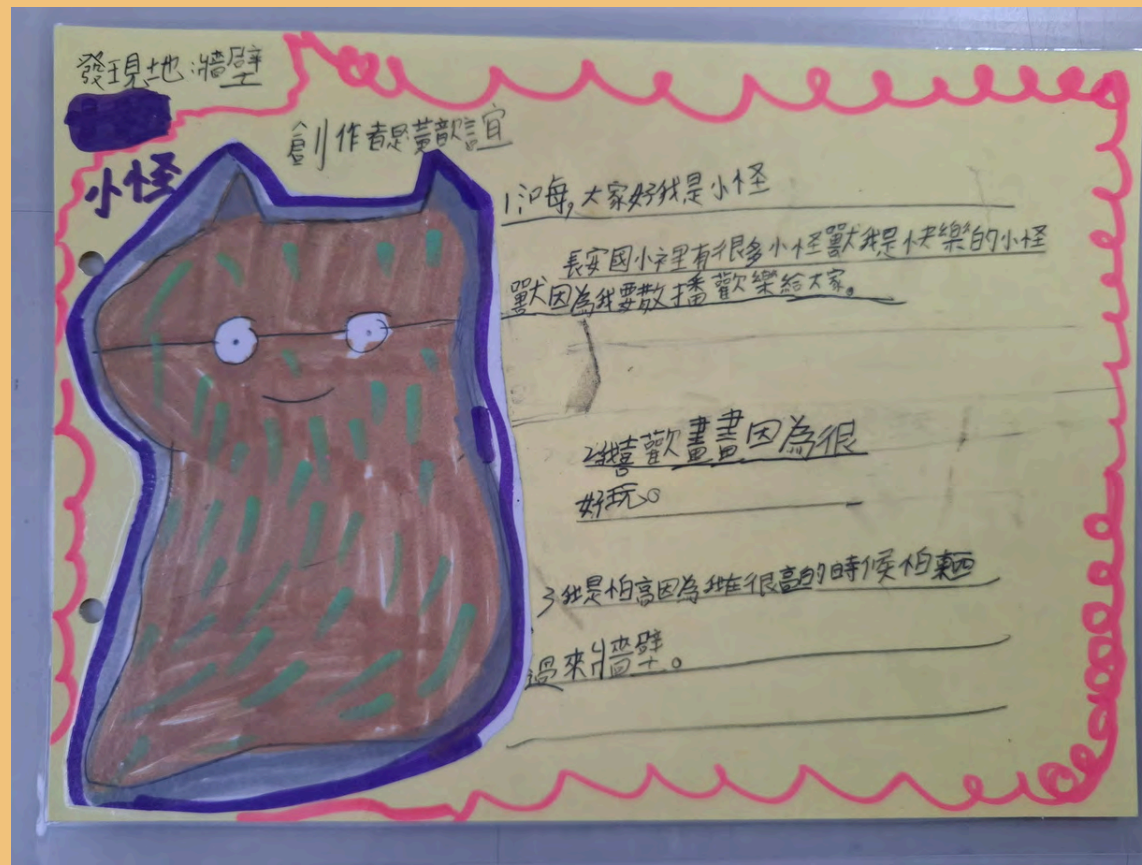 發現地:牆壁
創作者是黃歆誼
小怪
1.嗨,大家好我是小怪
長安國小裡有很多小怪獸我是快樂的小怪
獸因為我要散播歡樂給大家。
2我喜歡畫畫因為很
好玩。
3我是怕高因為我在很高的時候怕東西
過來牆壁。